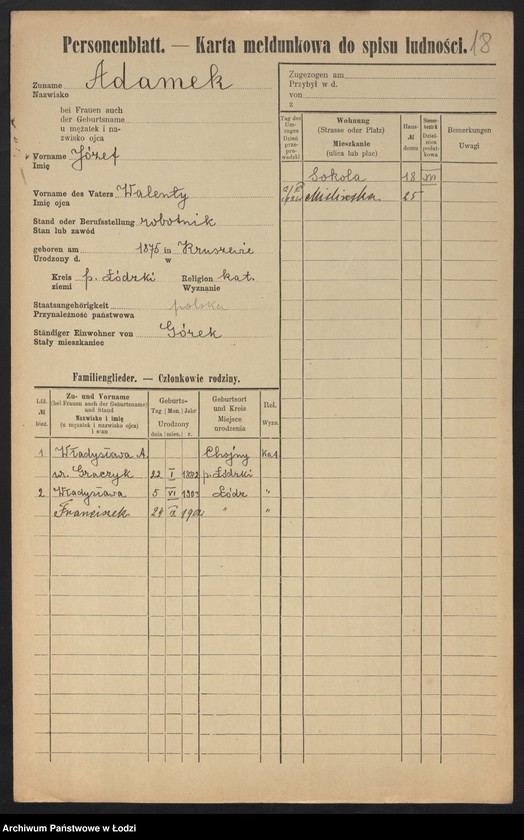 Personenblatt. — Karta meldunkowa do spisu ludności. 18
Zuname Adamek
Nazwisko
bei Frauen auch
der Geburtsname
u mężatek i na-
zwisko ojca
Vorname Józef
Imię
Vorname des Vaters Walenty
Imię ojca
Stand oder Berufsstellung robotnik
Stan lub zawód
geboren am 1875 in Kruszewie
Urodzony d. w
Kreis p. Łódzki Religion kat.
ziemi Wyznanie
Staatsangehörigkeit polska
Przynależność państwowa
Ständiger Einwohner von Górek
Stały mieszkaniec
Zugezogen am
Przybył w d.
von
z
Tag des Um-zuges Dzień prze-pro-wadzki
Wohnung
(Strasse oder Platz)
Mieszkanie
(ulica lub plac)
Haus-
№
domu
Bemerkungen
Uwagi
Sokola 18 XII
25
Familienglieder. — Członkowie rodziny.
Lfd.
№
bież.
Zu- und Vorname
(bei Frauen auch der Geburtsname)
und Stand
Nazwisko i imię
(u mężatek i nazwisko ojca)
i stan
Geburts-
Tag Mon. Jahr
Urodzony
dnia mies. r.
Geburtsort
und Kreis
Miejsce
urodzenia
Rel.
Wyzn.
1 Władysława A. Chojny Kat
22 I 1882 p. Łódzki
2 Władysława 5 VI 1903 Łódź "
Franciszek 24 " "
Archiwum Państwowe w Łodzi